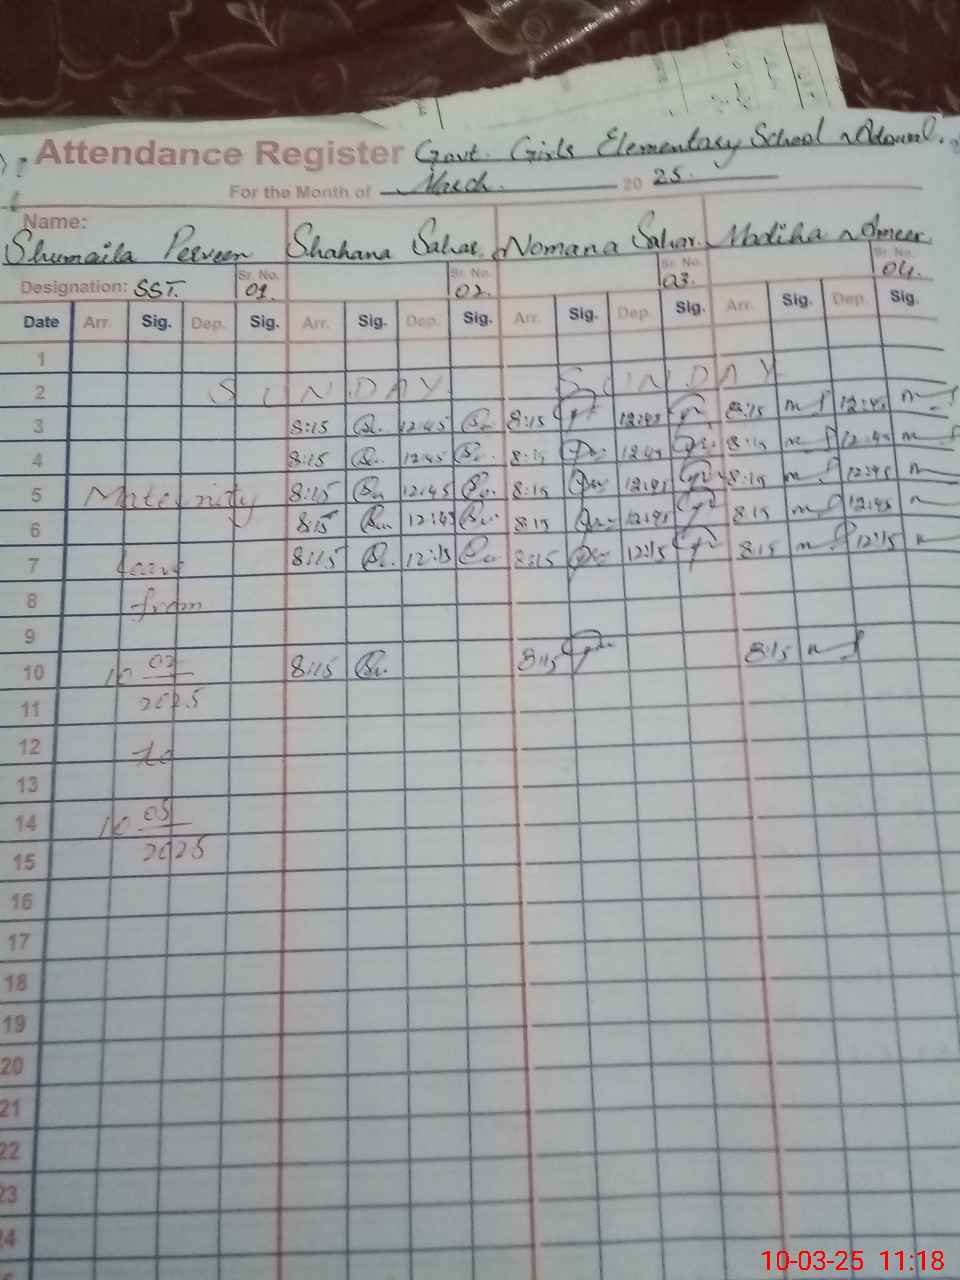 Attendance Register Govt. Girls Elementary School
For the Month of March. 20 25.
Name:
Shumaila Perveen Shahana Sahar. Nomana Sahar. Madiha
Sr. No. Sr. No. Sr. No. Sr. No.
Designation: SST. 01. 02. 03. 04.
Date Arr. Sig. Dep. Sig. Arr. Sig. Dep. Sig. Arr. Sig. Dep. Sig. Arr. Sig. Dep. Sig.
1
2 SUNDAY SUNDAY
3 8:15 12:45 8:15 12:45 8:15 12:45
4 8:15 12:45 8:15 12:45 8:15 12:45
5 Maternity 8:15 12:45 8:15 12:45 8:15 12:45
6 8:15 12:45 8:15 12:45 8:15 12:45
7 leave 8:15 12:15 8:15 12:15 8:15 12:15
8 from
9
10 10 02 8:15 8:15 8:15
11 2025
12 to
13
14 10 05
15 2025
16
17
18
19
20
21
22
23
24
10-03-25 11:18